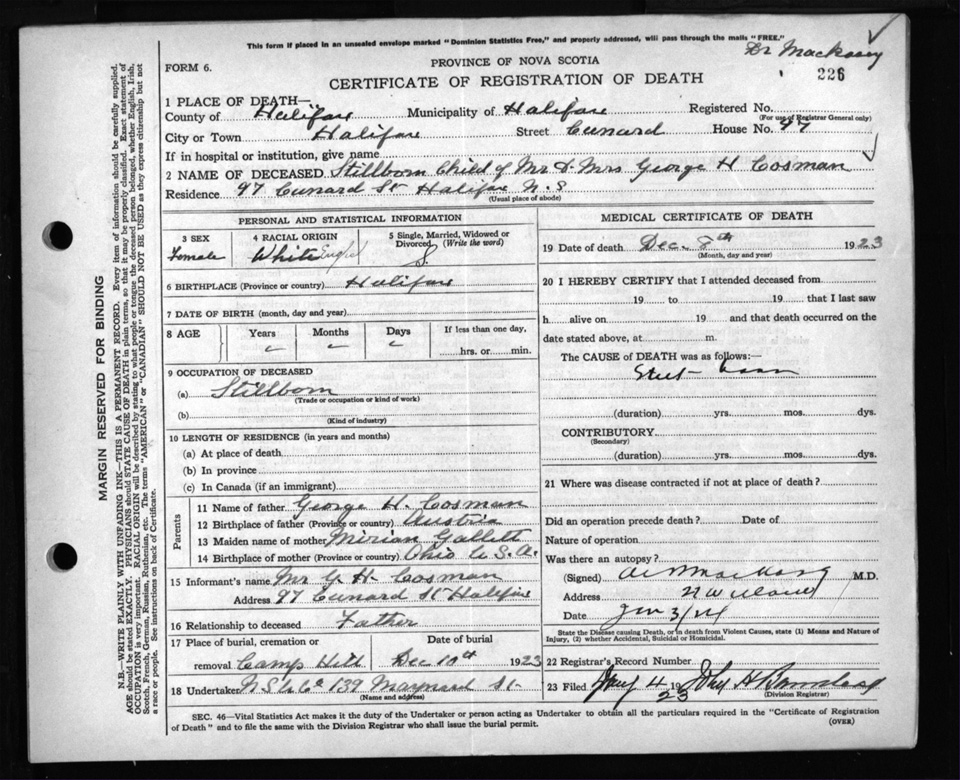 This form if placed in an unsealed envelope marked "Dominion Statistics Free," and properly addressed, will pass through the mails "FREE."
Dr Mackasey
226
FORM 6.
PROVINCE OF NOVA SCOTIA
CERTIFICATE OF REGISTRATION OF DEATH
1 PLACE OF DEATH—
County of Halifax Municipality of Halifax Registered No.
(For use of Registrar General only)
City or Town Halifax Street Cunard House No. 97
If in hospital or institution, give name
2 NAME OF DECEASED Stillborn Child of Mr & Mrs George H Cosman
Residence 97 Cunard St Halifax N.S
(Usual place of abode)
PERSONAL AND STATISTICAL INFORMATION
3 SEX 4 RACIAL ORIGIN 5 Single, Married, Widowed or Divorced (Write the word)
Female White English S
6 BIRTHPLACE (Province or country) Halifax
7 DATE OF BIRTH (month, day and year)
8 AGE Years Months Days If less than one day,
hrs. or min.
9 OCCUPATION OF DECEASED
(a) Stillborn
(Trade or occupation or kind of work)
(b)
(Kind of industry)
10 LENGTH OF RESIDENCE (in years and months)
(a) At place of death
(b) In province
(c) In Canada (if an immigrant)
Parents
11 Name of father George H. Cosman
12 Birthplace of father (Province or country) Austria
13 Maiden name of mother Mirian Gallett
14 Birthplace of mother (Province or country) Ohio U.S.A.
15 Informant's name Mr G. H. Cosman
Address 97 Cunard St Halifax
16 Relationship to deceased Father
17 Place of burial, cremation or removal Camp Hill Date of burial Dec 10th 1923
18 Undertaker N S U Co 139 Maynard St
(Name and address)
MEDICAL CERTIFICATE OF DEATH
19 Date of death Dec. 8th 1923
(Month, day and year)
20 I HEREBY CERTIFY that I attended deceased from
19 to 19 that I last saw
h alive on 19 and that death occurred on the
date stated above, at m.
The CAUSE of DEATH was as follows:—
Still born
(duration) yrs. mos. dys.
CONTRIBUTORY
(Secondary)
(duration) yrs. mos. dys.
21 Where was disease contracted if not at place of death?
Did an operation precede death? Date of
Nature of operation
Was there an autopsy?
(Signed) M.D.
Address
Date Jan 3/24
State the Disease causing Death, or in death from Violent Causes, state (1) Means and Nature of Injury, (2) whether Accidental, Suicidal or Homicidal.
22 Registrar's Record Number
23 Filed Jany 4 1923 John H
(Division Registrar)
SEC. 46—Vital Statistics Act makes it the duty of the Undertaker or person acting as Undertaker to obtain all the particulars required in the "Certificate of Registration
of Death" and to file the same with the Division Registrar who shall issue the burial permit.
(OVER)
MARGIN RESERVED FOR BINDING
N.B.—WRITE PLAINLY WITH UNFADING INK—THIS IS A PERMANENT RECORD. Every item of information should be carefully supplied.
AGE should be stated EXACTLY. PHYSICIANS should STATE CAUSE OF DEATH in plain terms, so that it may be properly classified. Exact statement of
OCCUPATION is very important. RACIAL ORIGIN will be described by stating to what people or tongue the deceased person belonged, whether English, Irish,
Scotch, French, German, Russian, Ruthenian, etc. The terms "AMERICAN" or "CANADIAN" SHOULD NOT BE USED as they express citizenship but not
a race or people. See instructions on back of Certificate.